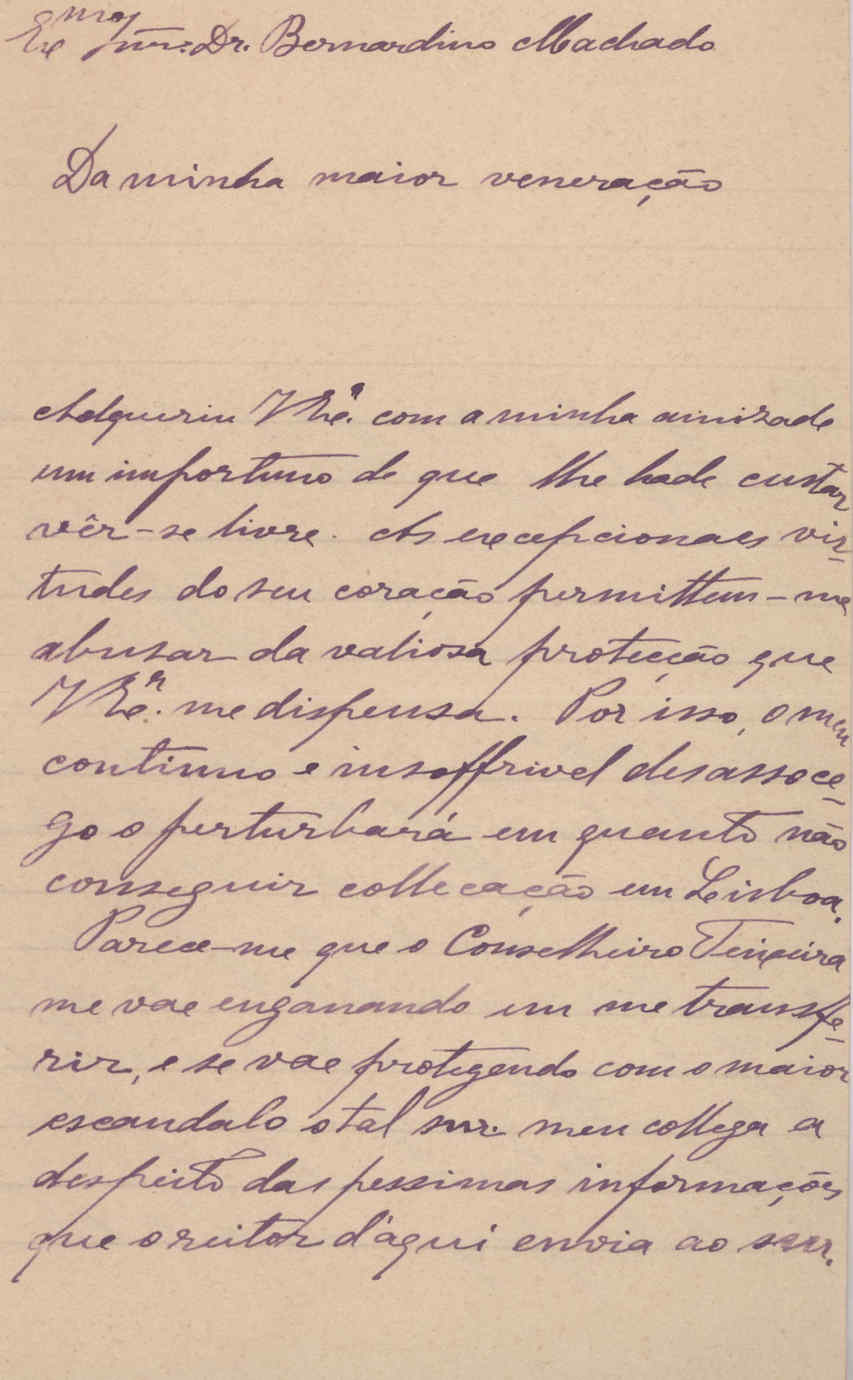 Exmo Snr. Dr. Bernardino Machado
Da minha maior veneração
Adquiriu V Exª. com a minha amizade
um importuno de que lhe hade custar
vêr-se livre. As excepcionaes vir-
tudes do seu coração permittem-me
abusar da valiosa protecção que
V Exª. me dispensa. Por isso, o meu
continuo e insoffrivel desassoce-
go o perturbará em quanto não
conseguir collecação em Lisboa.
Parece-me que o Conselheiro Teixeira
me vae enganando em me transfe-
rir, e se vae protegendo com o maior
escandalo o tal snr. meu collega a
despeito das pessimas informações
que o reitor d'aqui envia ao snr.